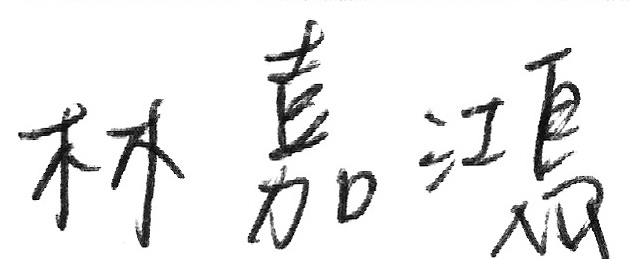 林嘉鴻